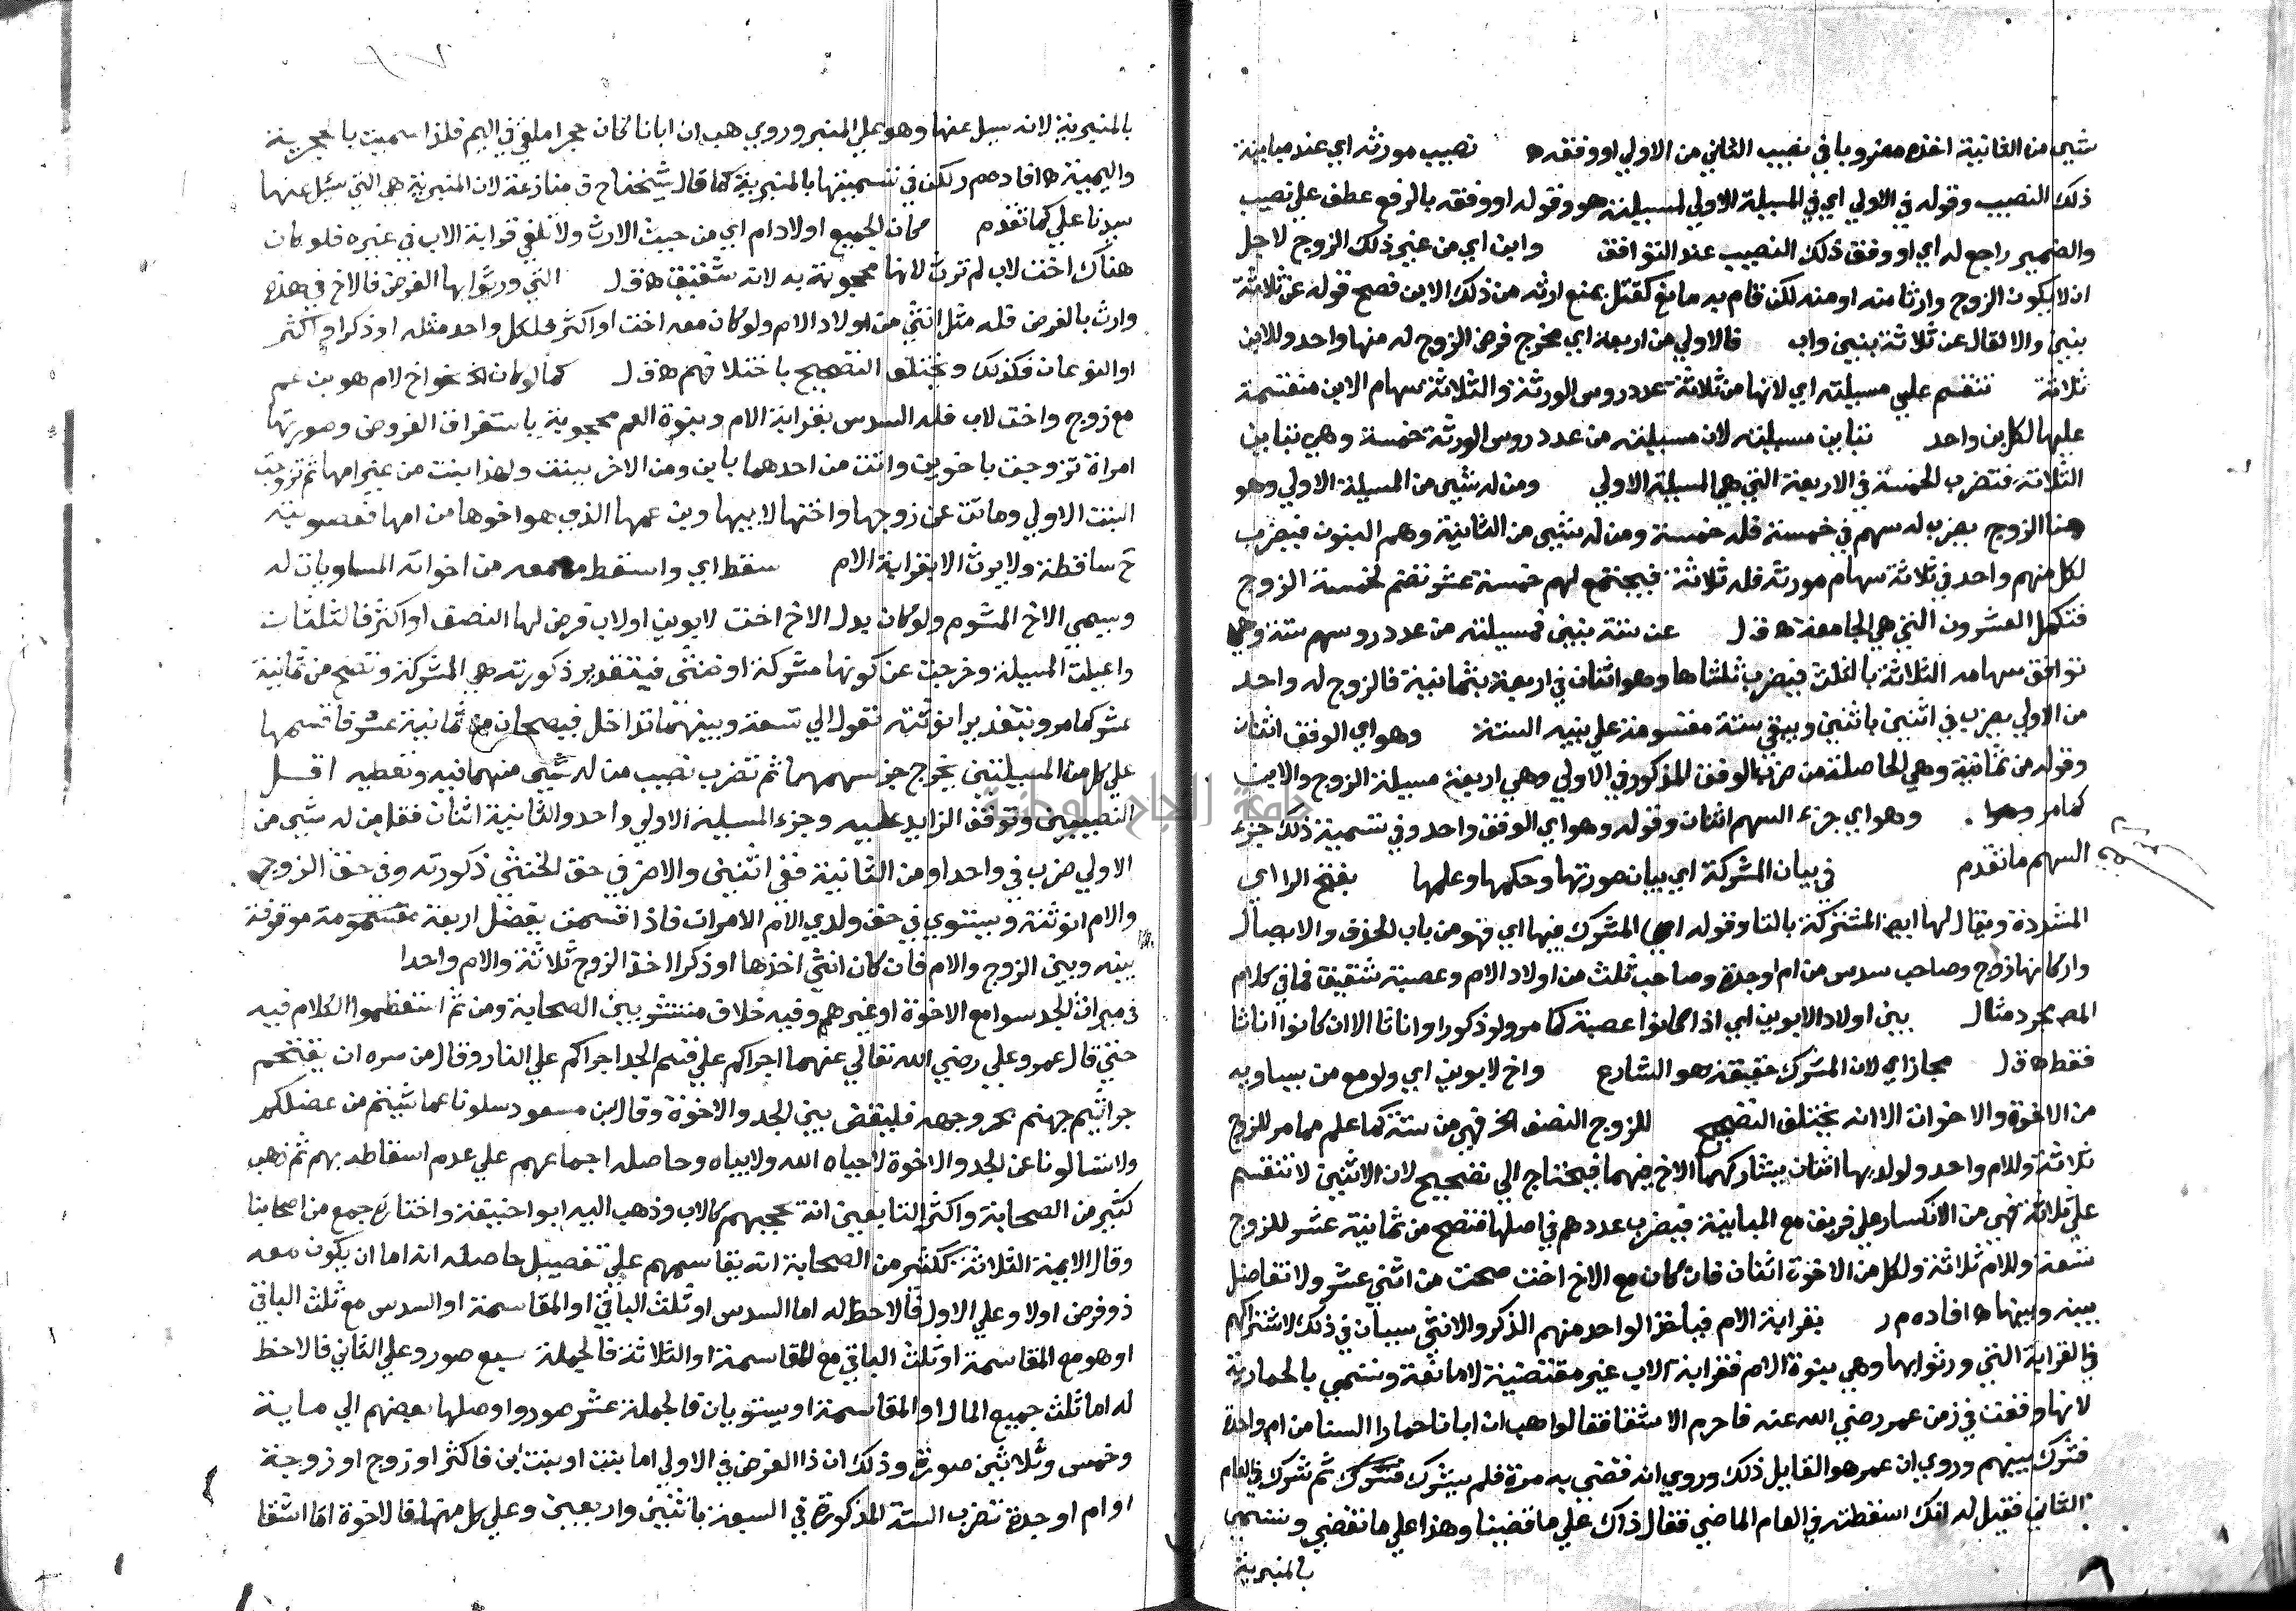 شيى من الثانية اخذه مضروبا في نصيب الثاني من الاولي او وفقه ه نصيب مورثه اي عند مباينة
ذلك النصيب وقوله في الاولي اي في المسيلة الاولي لمسيلته هو وقوله او وفقه بالرفع عطف علي نصيب
والضمير راجع له اي او وفق ذلك النصيب عند التوافق وابن اي من غير ذلك الزوج لاجل
ان لا يكون الزوج وارثا منه او منه لكن قام به مانع كقتل يمنع ارثه من ذلك الابن فصح قوله عن ثلاثة
بنين والا لقال عن ثلاثة بنين واب فالاولي من اربعة اي مخرج فرض الزوج له منها واحد وللابن
ثلاثة تنقسم علي مسيلته اي لانها من ثلاثة عدد روس الورثة والثلاثة سهام الابن منقسمة
عليها لكل بن واحد تباين مسيلته لان مسيلته من عدد روس الورثة خمسة وهي تباين
الثلاثة فتضرب الخمسة في الاربعة التي هي المسيلة الاولي ومن له شيى من المسيلة الاولي وهو
هنا الزوج يضرب له سهم في خمسة فله خمسة ومن له شيى من الثانية وهم البنون فيضرب
لكل منهم واحد في ثلاثة سهام مورثه فله ثلاثة فيجتمع لهم خمسة عشر تضم لخمسة الزوج
فتكمل العشرون التي هي الجامعة ه ق ل عن ستة بنين فمسيلته من عدد روسهم ستة وهي
توافق سهامه الثلاثة بالثلث فيضرب ثلثاها وهو اثنان في اربعة بثمانية فالزوج له واحد
من الاولي يضرب في اثنين باثنين ويبقي ستة مقسومة علي بنيه الستة وهو اي الوفق اثنان
وقوله من ثمانية وهي الحاصلة من ضرب الوفق المذكور في الاولي وهي اربعة مسيلة الزوج والابن
كما مر وهو اي جزء السهم اثنان وقوله وهو اي الوفق واحد وفي تسمية ذلك جزء
السهم ما تقدم في بيان المشركة اي بيان صورتها وحكمها وعلمها بفتح الرا اي
المشددة ويقال لها ايضا المشتركة بالتا وقوله اي المشرك فيها اي فهو من باب الحذف والايصال
واركانها زوج وصاحب سدس من ام او جدة وصاحب ثلث من اولاد الام وعصبة شقيقة فما في كلام
المص مجرد مثال بين اولاد الابوين اي اذا كانوا عصبة كما مر ولو ذكورا واناثا الا ان كانوا اناثا
فقط ه ق ل مجازا اي لان المشرك حقيقة هو الشارع واخ لابوين اي ولو مع من يساويه
من الاخوة والاخوات الا انه يختلف التصحيح للزوج النصف الخ فهي من ستة كما علم مما مر للزوج
ثلاثة وللام واحد ولولديها اثنان يشاركهما الاخ فيهما فيحتاج الي تصحيح لان الاثنين لا تنقسم
علي ثلاثة فهي من الانكسار علي فريق مع المباينة فيضرب عددهم في اصلها فتصح من ثمانية عشر للزوج
تسعة وللام ثلاثة ولكل من الاخوة اثنان فان كان مع الاخ اخت صحت من اثني عشر ولا تفاضل
بينه وبينها ه افاده م ر بقرابة الام فياخذ الواحد منهم الذكر والانثى سيان في ذلك لاشتراكهم
في القرابة التي ورثوا بها وهي بنوة الام فقرابة الاب غير مقتضية لا مانعة وتسمي بالحمارية
لانها وقعت في زمن عمر رضي الله عنه فاحرم الاشقا فقالوا هب ان ابانا حمارا السنا من ام واحدة
فشرك بينهم وروي ان عمر هو القايل ذلك وروي انه قضي به مرة فلم يشرك ثم شرك في العام
الثاني فقيل له انك اسقطته في العام الماضي فقال ذاك علي ما قضينا وهذا علي ما نقضي وتسمي
بالمنبرية
بالمنبرية لانه سيل عنها وهو علي المنبر وروي هب ان ابانا كان حجرا ملقي في اليم فلذا سميت بالحجرية
واليمية ه افاده م ر لكن في تسميتها بالمنبرية كما قال شيخنا ح ف منازعة لان المنبرية هي التي سئل عنها
سيدنا علي كما تقدم كان الجميع اولاد ام اي من حيث الارث ولا تلغي قرابة الاب في غيره فلو كان
هناك اخت لاب لم ترث لانها محجوبة به لانه شقيق ه ق ل التي ورثوا بها الفرض فالاخ في هذه
وارث بالفرض فله مثل انثى من اولاد الام ولو كان معه اخت او اكثر فلكل واحد مثله او ذكر او اكثر
او النوعان فكذلك ويختلف التصحيح باختلافهم ه ق ل كما لو كان الخ نحو اخ لام هو بن عم
مع زوج واخت لاب فله السدس بقرابة الام وبنوة العم محجوبة باستغراق الفروض وصورتها
امراة تزوجت باخوين واتت من احدهما بابن ومن الاخر ببنت ولهذا بنت من غير امها ثم تزوجت
البنت الاولي وماتت عن زوجها واختها لابيها وبن عمها الذي هو اخوها من امها فعصوبته
ح ساقطة ولا يرث الا بقرابة الام سقط اي واسقط من معه من اخواته المساويات له
ويسمي الاخ المشوم ولو كان بدل الاخ اخت لابوين او لاب فرض لها النصف او اكثر فالثلثان
واعيلت المسيلة وخرجت عن كونها مشركة او خنثى فبتقدير ذكورته هي المشركة وتصح من ثمانية
عشر كما مر وبتقدير انوثته تعول الي تسعة وبينهما تداخل فيصحان من ثمانية عشر فاقسمها
علي كل من المسيلتين يخرج جز سهمها ثم تضرب نصيب من له شيى منهما فيه وتعطيه اقل
النصيبين وتوقف الزايد عليه وجزء المسيلة الاولي واحد والثانية اثنان فقل من له شيى من
الاولي ضرب في واحد او من الثانية ففي اثنين والاضر في حق الخنثي ذكورته وفي حق الزوج
والام انوثته ويستوي في حق ولدي الام الامران فاذا قسمت يفضل اربعة موقوفة
بينه وبين الزوج والام فان كان انثى اخذها او ذكرا اخذ الزوج ثلاثة والام واحدا
في ميراث الجد سوا مع الاخوة او غيرهم وفيه خلاف منتشر بين الصحابة ومن ثم استعظموا الكلام فيه
حتى قال عمر وعلي رضي الله تعالي عنهما اجراكم علي قسم الجد اجراكم علي النار وقال من سره ان يقتحم
جراثيم جهنم بحر وجهه فليقض بين الجد والاخوة وقال ابن مسعود سلونا عما شيتم من عضلكم
ولا تسالونا عن الجد والاخوة لا حياه الله ولا بياه وحاصله اجماعهم علي عدم اسقاطه بهم ثم ذهب
كثير من الصحابة واكثر التابعين انه يحجبهم كالاب وذهب اليه ابو احنيفة واختاره جمع من اصحابنا
وقال الايمة الثلاثة ككثير من الصحابة انه يقاسمهم علي تفصيل حاصله انه اما ان يكون معه
ذو فرض اولا وعلي الاول فالاحظ له اما السدس او ثلث الباقي او المقاسمة او السدس مع ثلث الباقي
او هو مع المقاسمة او ثلث الباقي مع المقاسمة او الثلاثة فالجملة سبع صور وعلي الثاني فالاحظ
له اما ثلث جميع المال او المقاسمة او يستويان فالجملة عشر صور واوصلها بعضهم الي ماية
وخمس وثلاثين صورة وذلك ان ذا الفرض في الاولي اما بنت او بنت ابن فاكثر او زوج او زوجة
او ام او جدة تضرب الستة المذكورة في السبعة باثنين واربعين وعلي كل منها فالاخوة اما اشقا